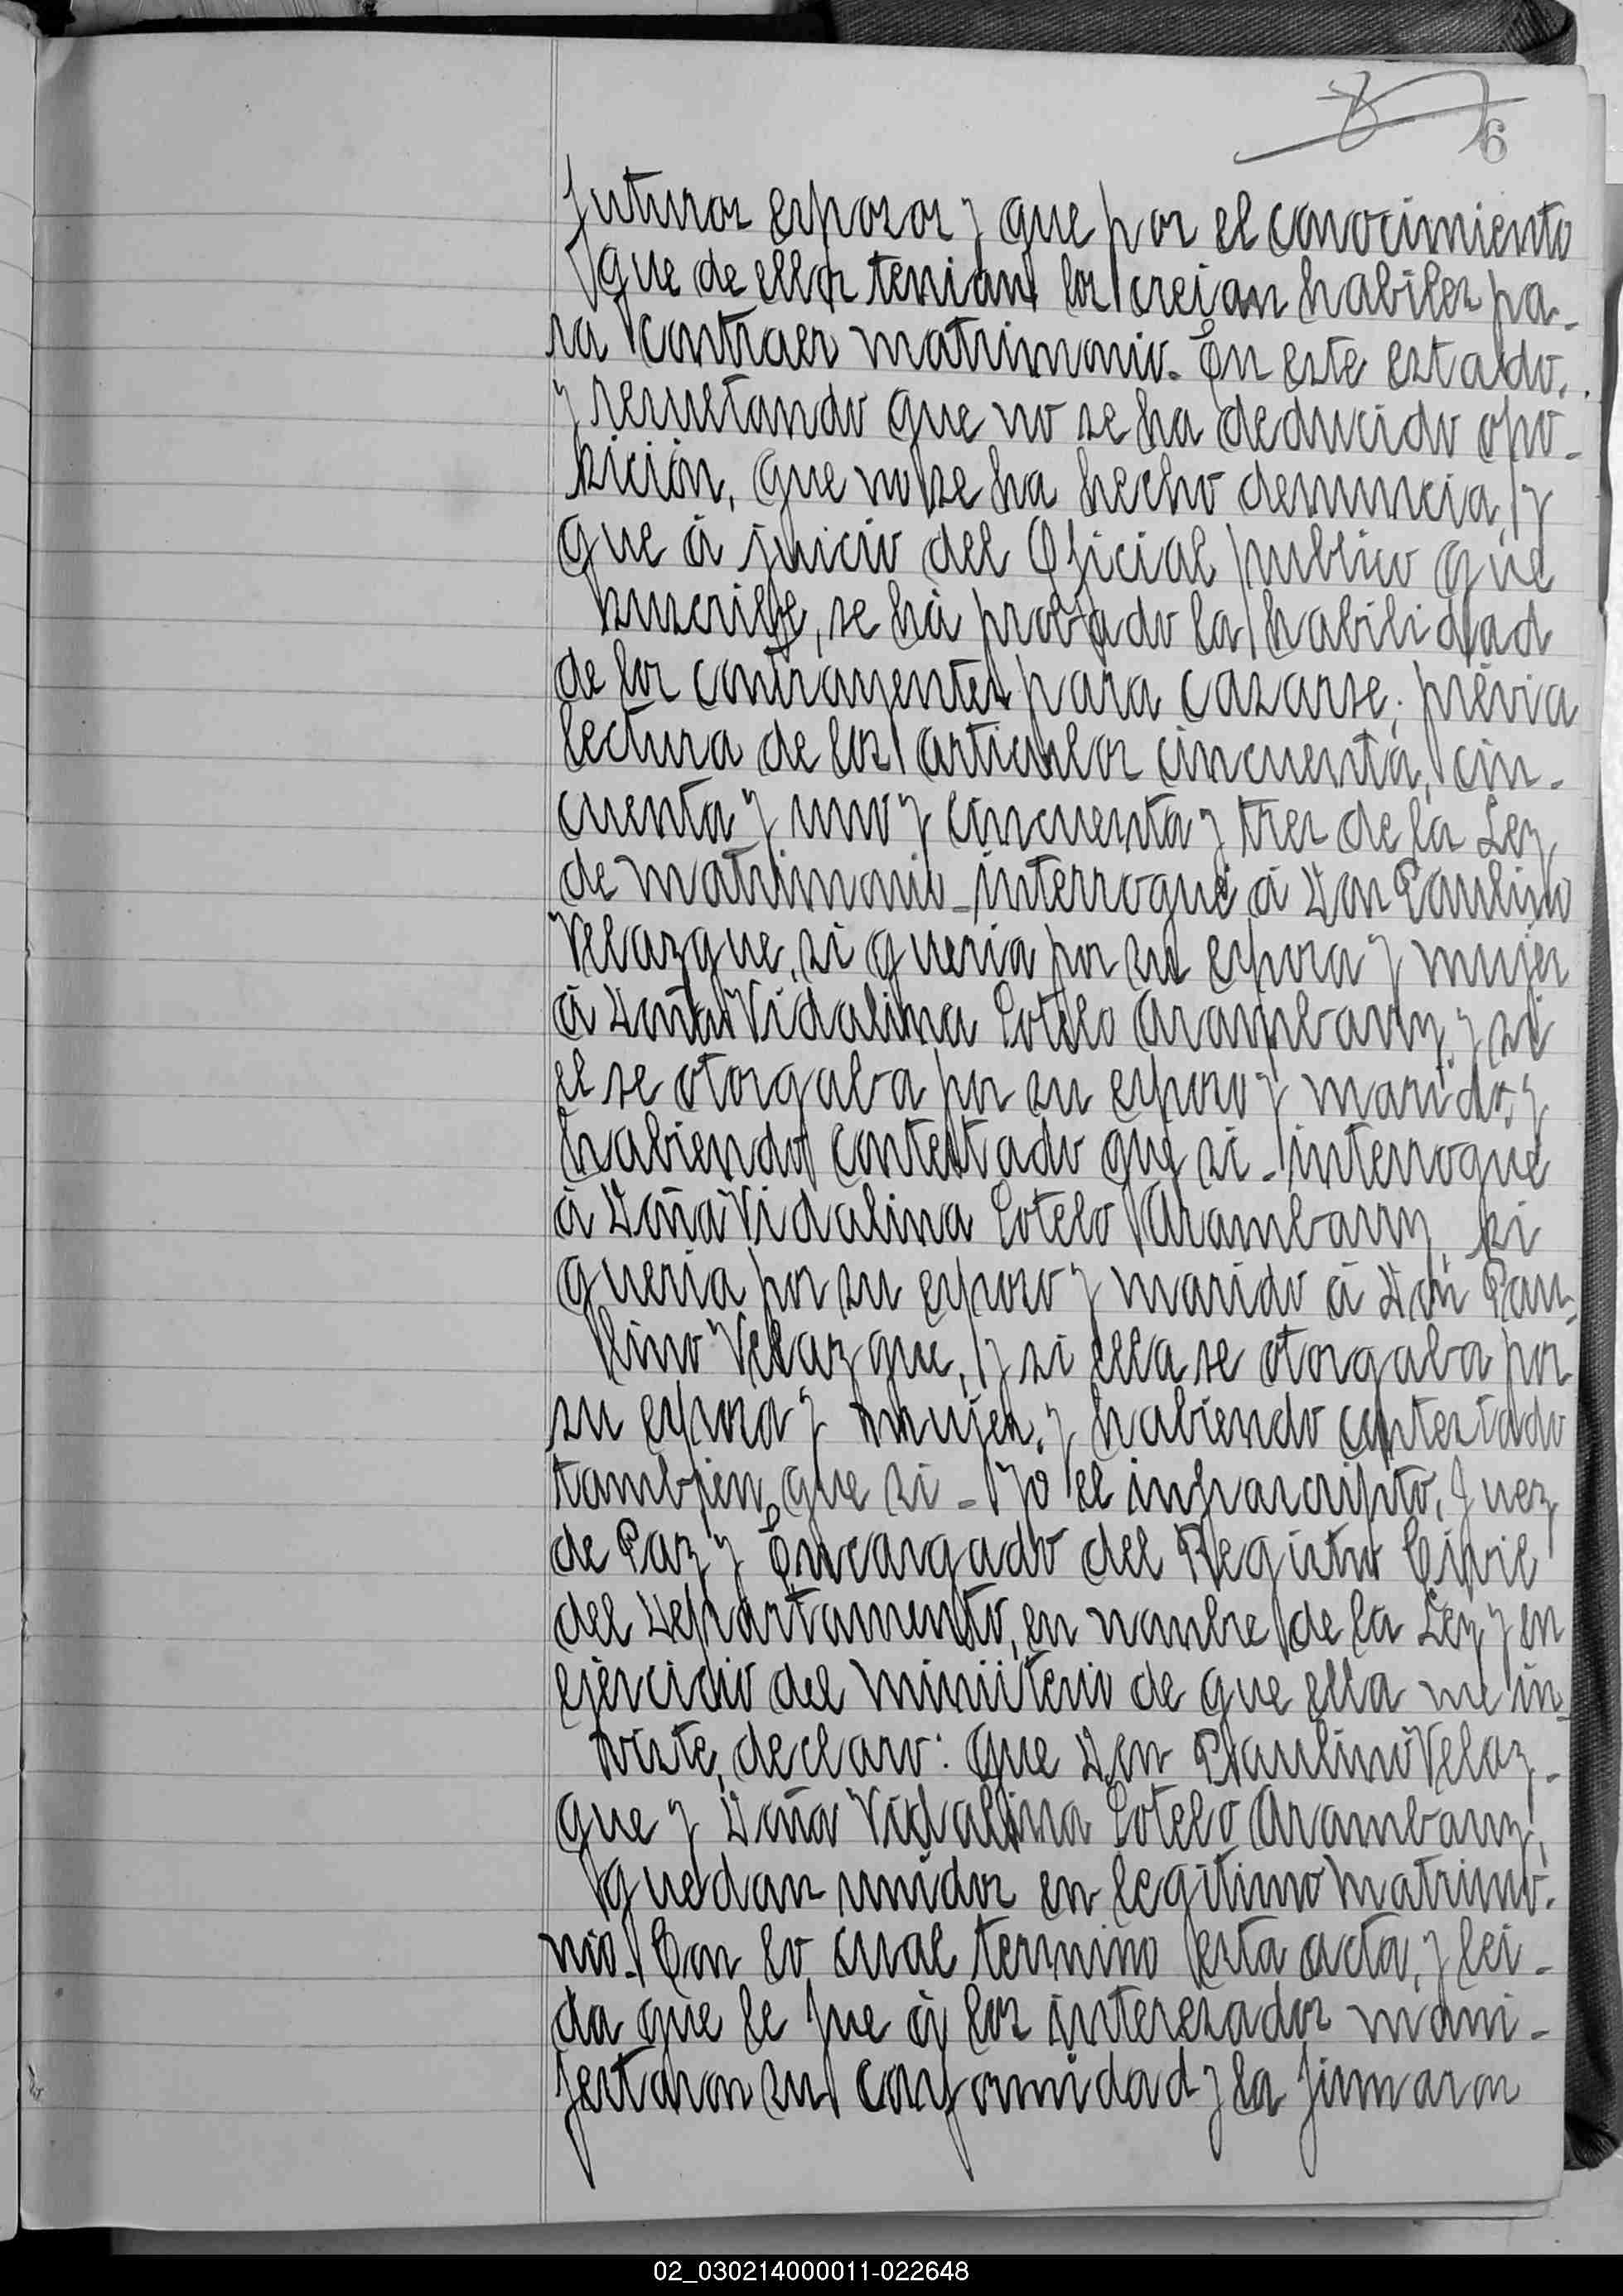 6
futuros esposos y que por el conocimiento
que de ellos tenian los creian habiles pa-
ra contraer matrimonio. En este estado,
y resultando que no se ha deducido opo-
sición, que no se ha hecho denuncia, y
que á juicio del Oficial publico que
suscribe, se há probado la habilidad
de los contrayentes para casarse; prévia
lectura de los articulos cincuenta, cin-
cuenta y uno y cincuenta y tres de la Ley
de matrimonio - interrogué á Don Paulino
Velazque, si queria por su esposa y mujer
á Doña Vidalina Sotelo Arambarry, y si
el se otorgaba por su esposo y marido, y
habiendo contestado que si - interrogué
á Doña Vidalina Sotelo Arambarry, si
queria por su esposo y marido á Don Pau-
lino Velazque, y si ella se otorgaba por
su esposa y mujer, y habiendo contestado
tambien que si - Yo el infrascripto, Juez
de Paz y Encargado del Registro Civil
del Departamento, en nombre de la Ley y en
ejercicio del ministerio de que ella me in-
viste, declaro: Que Don Paulino Velaz-
que y Doña Vidalina Sotelo Arambarry,
quedan unidos en legítimo matrimo-
nio. Con lo cual termino esta acta, y lei-
da que le fue á los interesados mani-
festaron su conformidad y la firmaron
02_030214000011-022648